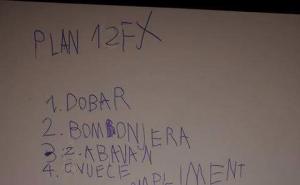 PLAN 12FX
1. DOBAR
2. BOMBONJERA
3. ZABAVAN
4. CVIJEĆE
KOMPLIMENT